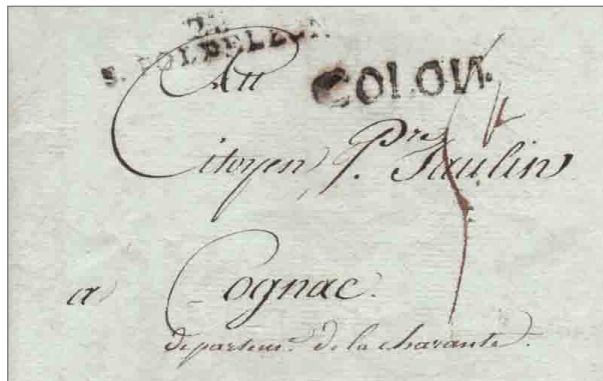 S. POL DE LEON
COLON.
Au
Citoyen P.re
a Cognac.
departem.t de la charante.